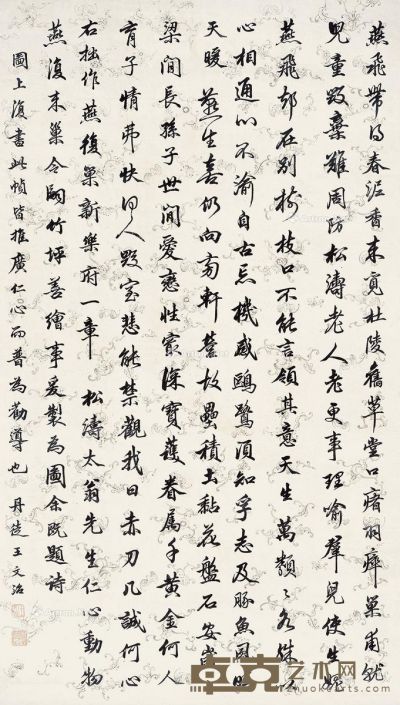 燕飛帶得春泥香來覓杜陵舊草堂口瘏羽瘁巢甫就
兒童毀棄難周防松濤老人老更事理喻羣兒使生悔
燕飛却在別樹枝口不能言領其意天生萬類々各殊
心相通心不渝自古忘機感鷗鷺須知孚志及豚魚風
天暖燕生喜仍向南軒營故壘積土黏花盤石安當
梁間長孫子世間愛戀性最深寶護眷屬千黃金何人
育子情弗快何人毀室悲能禁觀我曰赤刀几誠何心
右拙作燕復巢新樂府一章 松濤太翁先生仁心動物
燕復來巢令嗣竹坪善繪事爰製為圖余既題詩
圖上復書此幀皆推廣仁心而普為勸導也 丹徒王文治
卓克艺术网